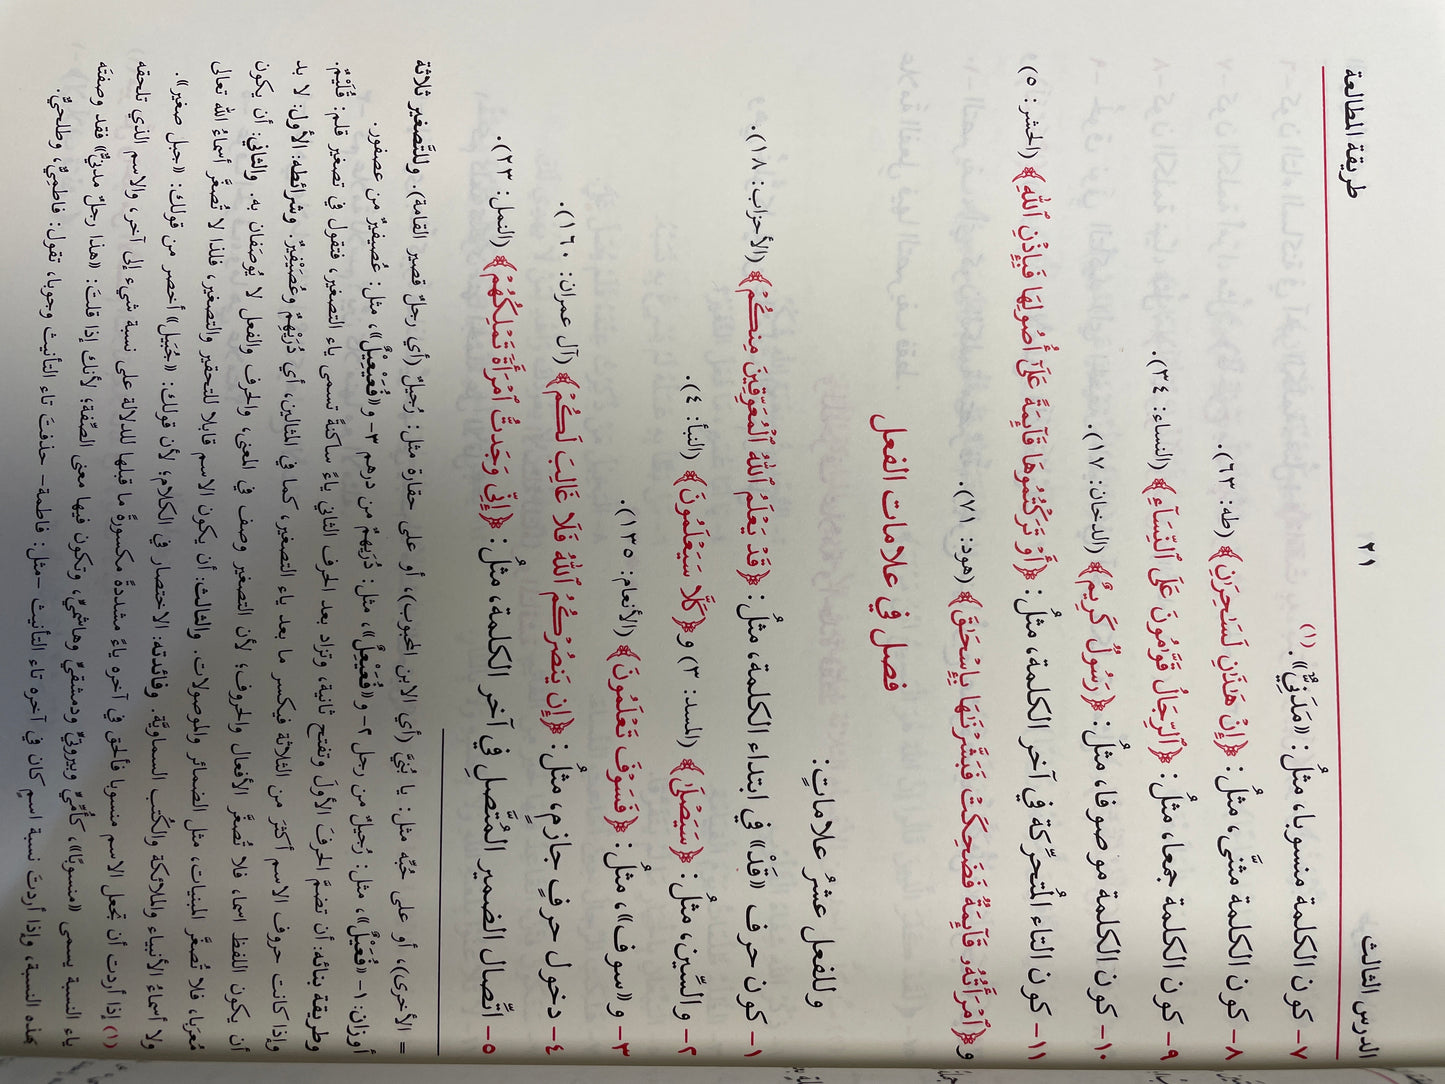 الدرس الثالث ٣١ طريقة المطالعة
٧- كون الكلمة منسوبا، مثلُ: «مَدَنِيٌّ».(١)
٨- كون الكلمة مثنَّى، مثلُ: ﴿إِنْ هَٰذَٰنِ لَسَٰحِرَٰنِ﴾ (طه: ٦٣).
٩- كون الكلمة جمعا، مثلُ: ﴿ٱلرِّجَالُ قَوَّٰمُونَ عَلَى ٱلنِّسَآءِ﴾ (النساء: ٣٤).
١٠- كون الكلمة موصوفا، مثلُ: ﴿رَسُولٌ كَرِيمٌ﴾ (الدخان: ١٧).
١١- كون التاء المُتحرِّكة في آخر الكلمة، مثلُ: ﴿أَوْ تَرَكْتُمُوهَا قَآئِمَةً عَلَىٰٓ أُصُولِهَا فَبِإِذْنِ ٱللَّهِ﴾ (الحشر: ٥)
و﴿ٱمْرَأَتُهُۥ قَآئِمَةٌ فَضَحِكَتْ فَبَشَّرْنَٰهَا بِإِسْحَٰقَ﴾ (هود: ٧١).
فصل في علامات الفعل
وللفعل عشرُ علاماتٍ:
١- كون حرف «قَدْ» في ابتداء الكلمة، مثلُ: ﴿قَدْ يَعْلَمُ ٱللَّهُ ٱلْمُعَوِّقِينَ مِنكُمْ﴾ (الأحزاب: ١٨).
٢- والسِّين، مثلُ: ﴿سَيَصْلَىٰ﴾ (المسد: ٣) و﴿كَلَّا سَيَعْلَمُونَ﴾ (النبأ: ٤).
٣- و«سوف»، مثلُ: ﴿فَسَوْفَ تَعْلَمُونَ﴾ (الأنعام: ١٣٥).
٤- دخول حرفٍ جازمٍ، مثلُ: ﴿إِن يَنصُرْكُمُ ٱللَّهُ فَلَا غَالِبَ لَكُمْ﴾ (آل عمران: ١٦٠).
٥- اتِّصال الضمير المُتَّصلِ في آخر الكلمة، مثلُ: ﴿إِنِّي وَجَدتُّ ٱمْرَأَةً تَمْلِكُهُمْ﴾ (النمل: ٢٣).
= الأخرى)، أو على حُبِّه مثل: يا بُنَيَّ (أي الابن المحبوب)، أو على حقارة مثل: رُجيلٌ (أي رجلٌ قصير القامة). وللتَّصغير ثلاثة
أوزان: ١- «فُعَيْلٌ»، مثل: رُجيلٌ من رجل ٢- و«فُعَيْعِلٌ»، مثل: دُرَيهِمٌ من درهم ٣- و«فُعَيْعِيْلٌ»، مثل: عُصيفيرٌ من عصفور.
وطريقة بنائه: أن تضمَّ الحرفَ الأولَ وتفتح ثانية، وتزاد بعد الحرف الثاني ياءً ساكنةً تسمى ياء التصغير، فتقول في تصغير قلم: قُلَيْمٌ.
وإذا كانت حروف الاسم أكثرَ من الثلاثة فيكسر ما بعد ياء التصغير، كما في المثالين، أي دُرَيْهِمٌ وعُصَيْفِيْرٌ. وشرائطه: الأول: لا بد
أن يكون اللفظ اسما، فلا تُصغَّر الأفعال والحروف؛ لأن التصغير وصف في المعنى، والحرف والفعل لا يُوصَفان به. والثاني: أن يكون
مُعرَبا، فلا تُصغَّر المبنيات، مثل الضمائر والموصولات. والثالث: أن يكون الاسم قابلا للتحقير والتصغير، فلذا لا تُصغَّر أسماءُ الله تعالى
ولا أسماءُ الأنبياء والملائكة والكُتب السماويَّة. وفائدته: الاختصار في الكلام؛ لأن قولك: «جُبَيل» أخصر من قولك: «جبل صغير».
(١) إذا أردت أن تجعل الاسم منسوبا فألحق في آخره ياءً مشددةً مكسورةً ما قبلها للدلالة على نسبة شيء إلى آخر، والاسم الذي تلحقه
ياء النسبة يسمى «منسوبًا»، كأُمِّيٍّ وبيروتيٍّ ودمشقيٍّ وهاشميٍّ، وتكون فيها معنى الصِّفة؛ لأنك إذا قلتَ: «هذا رجلٌ مدنيٌّ» فقد وصفتَه
بهذه النسبة، وإذا أردتَ نسبة اسمٍ كان في آخره تاء التأنيث –مثل: فاطمة– حذفتَ تاء التأنيث وجوبا، تقول: فاطميٌّ، وطلحيٌّ.